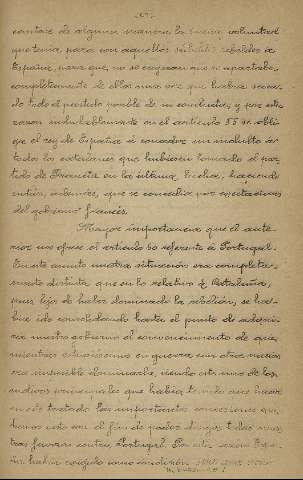 contrar de alguna manera la buena voluntad
que tenía para con aquellos súbditos rebeldes á
España, para que no se creyeran que se apartaba
completamente de ellos una vez que habia saca-
do todo el partido posible de su conducta, y por esta
razon indudablemente en el artículo 55 se obli-
ga el rey de España á conceder un indulto á
todos los catalanes que hubiesen tomado el par-
tido de Francia en la última lucha, haciendo
notar, además, que se concedia por
del gobierno francés.
Mayor importancia que el ante-
rior nos ofrece el artículo 60 referente á Portugal.
En este asunto nuestra situación era completa-
mente distinta que en lo relativo á Cataluña,
pues lejos de haber dominado la rebelión, se ha-
bia ido consolidando hasta el punto de
nuestro gobierno el convencimiento de que
mientras estuviésemos en guerra con otra nacion
era imposible dominarla, siendo este uno de los
motivos principales que habia tenido para hacer
en este tratado las importantes concesiones que
hemos visto con el fin de poder dirigir todas nues-
tras fuerzas contra Portugal. Por esta razon Espa-
ña habia exigido como condición